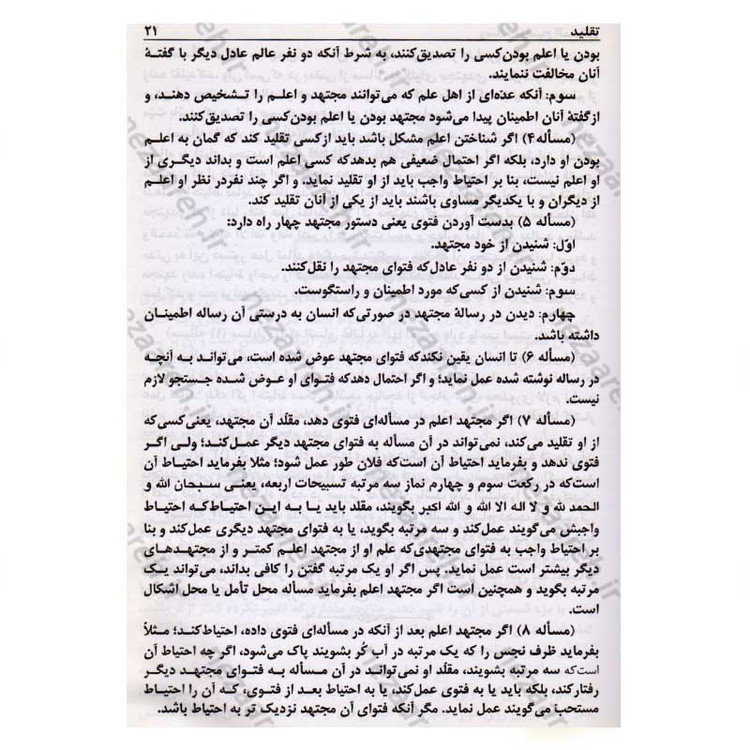 تقلید ۲۱
بودن یا اعلم بودن کسی را تصدیق کنند، به شرط آنکه دو نفر عالم عادل دیگر با گفتهٔ
آنان مخالفت ننمایند.
سوم: آنکه عده‌ای از اهل علم که می‌توانند مجتهد و اعلم را تشخیص دهند، و
از گفتهٔ آنان اطمینان پیدا می‌شود مجتهد بودن یا اعلم بودن کسی را تصدیق کنند.
(مسأله ۴) اگر شناختن اعلم مشکل باشد باید از کسی تقلید کند که گمان به اعلم
بودن او دارد، بلکه اگر احتمال ضعیفی هم بدهد که کسی اعلم است و بداند دیگری از
او اعلم نیست، بنا بر احتیاط واجب باید از او تقلید نماید. و اگر چند نفر در نظر او اعلم
از دیگران و با یکدیگر مساوی باشند باید از یکی از آنان تقلید کند.
(مسأله ۵) بدست آوردن فتوی یعنی دستور مجتهد چهار راه دارد:
اوّل: شنیدن از خود مجتهد.
دوّم: شنیدن از دو نفر عادل که فتوای مجتهد را نقل کنند.
سوم: شنیدن از کسی که مورد اطمینان و راستگوست.
چهارم: دیدن در رسالهٔ مجتهد در صورتی که انسان به درستی آن رساله اطمینان
داشته باشد.
(مسأله ۶) تا انسان یقین نکند که فتوای مجتهد عوض شده است، می‌تواند به آنچه
در رساله نوشته شده عمل نماید؛ و اگر احتمال دهد که فتوای او عوض شده جستجو لازم
نیست.
(مسأله ۷) اگر مجتهد اعلم در مسأله‌ای فتوی دهد، مقلّد آن مجتهد، یعنی کسی که
از او تقلید می‌کند، نمی‌تواند در آن مسأله به فتوای مجتهد دیگر عمل کند؛ ولی اگر
فتوی ندهد و بفرماید احتیاط آن است که فلان طور عمل شود؛ مثلا بفرماید احتیاط آن
است که در رکعت سوم و چهارم نماز سه مرتبه تسبیحات اربعه، یعنی سبحان الله و
الحمد لله و لا اله الا الله و الله اکبر بگویند، مقلد باید یا به این احتیاط که احتیاط
واجبش می‌گویند عمل کند و سه مرتبه بگوید، یا به فتوای مجتهد دیگری عمل کند و بنا
بر احتیاط واجب به فتوای مجتهدی که علم او از مجتهد اعلم کمتر و از مجتهدهای
دیگر بیشتر است عمل نماید. پس اگر او یک مرتبه گفتن را کافی بداند، می‌تواند یک
مرتبه بگوید و همچنین است اگر مجتهد اعلم بفرماید مسأله محل تأمل یا محل اشکال
است.
(مسأله ۸) اگر مجتهد اعلم بعد از آنکه در مسأله‌ای فتوی داده، احتیاط کند؛ مثلاً
بفرماید ظرف نجس را که یک مرتبه در آب کُر بشویند پاک می‌شود، اگر چه احتیاط آن
است که سه مرتبه بشویند، مقلّد او نمی‌تواند در آن مسأله به فتوای مجتهد دیگر
رفتار کند، بلکه باید یا به فتوی عمل کند، یا به احتیاط بعد از فتوی، که آن را احتیاط
مستحب می‌گویند عمل نماید. مگر آنکه فتوای آن مجتهد نزدیک تر به احتیاط باشد.